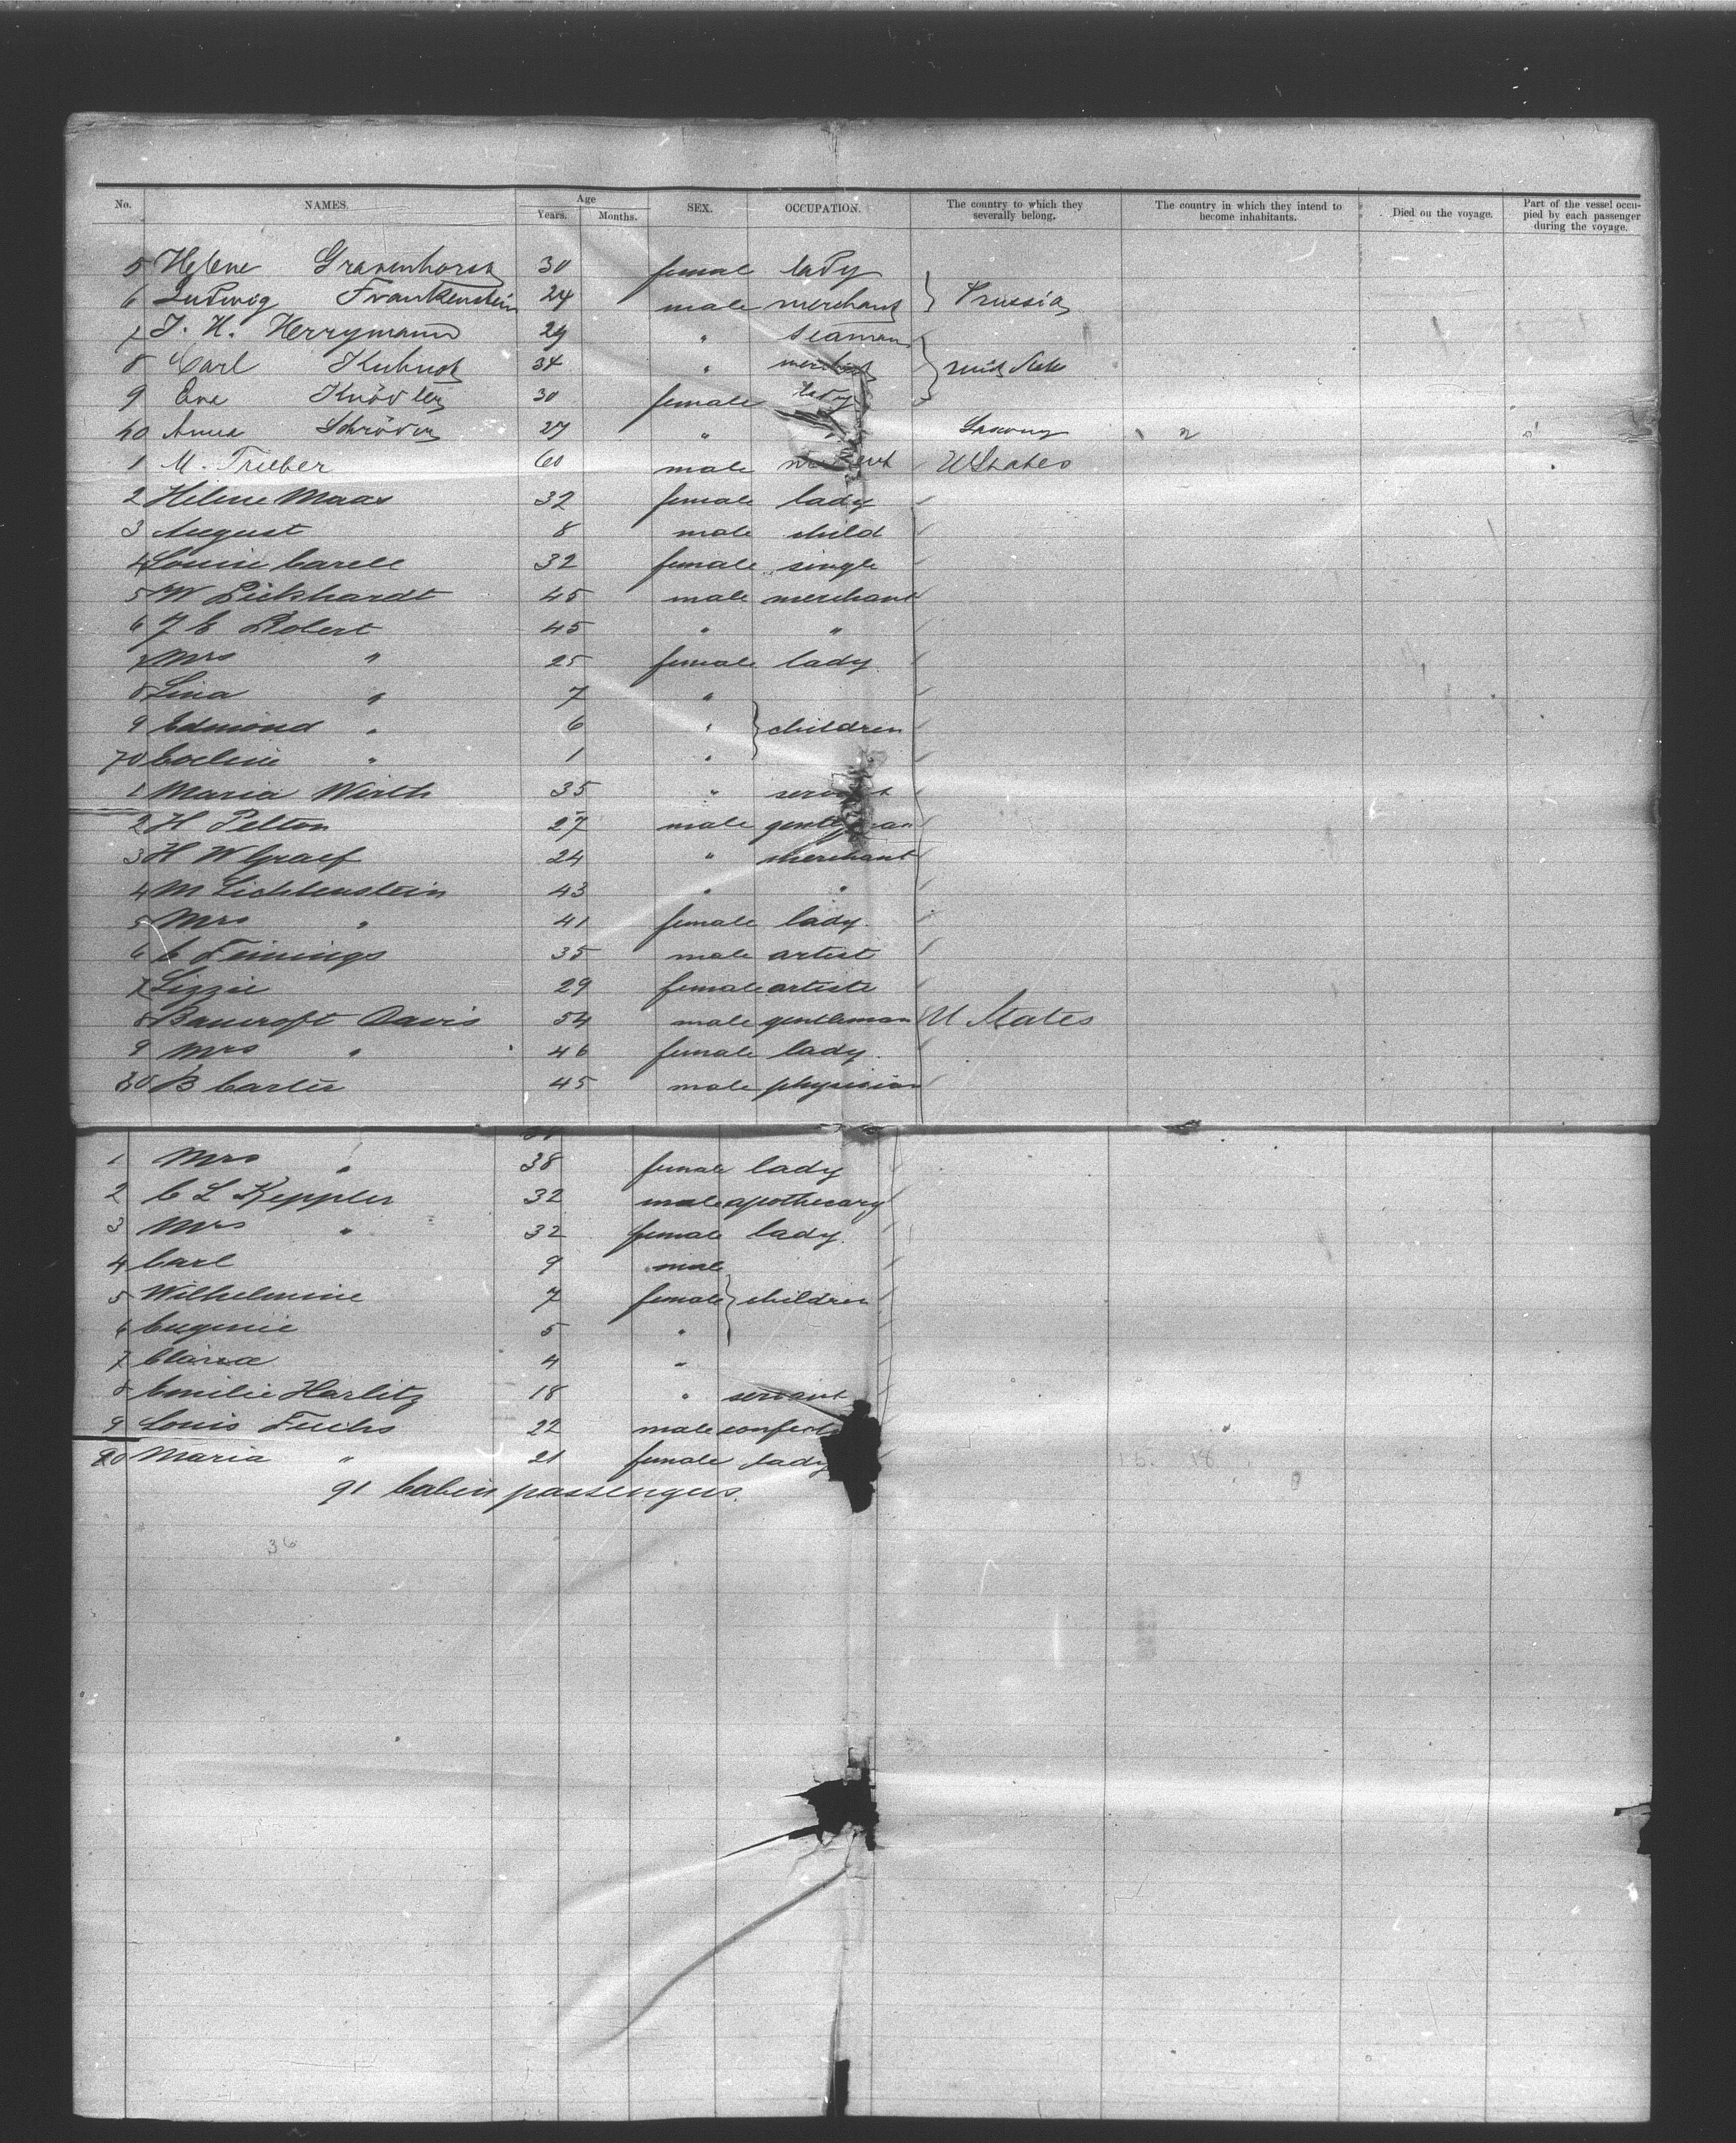 No. NAMES. Age Years. Months. SEX. OCCUPATION. The country to which they severally belong. The country in which they intend to become inhabitants. Died on the voyage. Part of the vessel occupied by each passenger during the voyage.
5 Helene Gravenhorst 30 female lady
6 Ludwig Frankenstein 24 male merchant } Prussia
7 J. H. Herrymann 29 " seaman
8 Carl 34 " merchant
9 Eve Knödler 30 female lady
60 Anna Schröder 27 "
1 M. Trieber 60 male U States
2 Helene Maas 32 female lady
3 August 8 male child
4 Louise Carell 32 female single
5 W Pickhardt 45 male merchant
6 J E Robert 45 " "
7 Mrs " 25 female lady
8 Lina " 7 "
9 Edmond " 6 " } children
70 " 1 "
1 Maria Wirth 35 " servant
2 H Pelton 27 male gentleman
3 H W Graef 24 " merchant
4 M Lichtenstein 43 " "
5 Mrs " 41 female lady.
6 C Feinings 35 male artist
7 Lizzie 29 female artiste
8 Bancroft Davis 54 male gentleman U States
9 Mrs " 46 female lady.
80 B Carter 45 male physician
1 Mrs " 38 female lady
2 C L Keppler 32 male apothecary
3 Mrs " 32 female lady.
4 Carl 9 male
5 Wilhelmine 7 female } children
6 Eugenie 5 "
7 Clara 4 "
8 Emilie Harlitz 18 " servant
9 Louis Fuchs 22 male confect
90 Maria " 21 female lady
91 Cabin passengers.
36